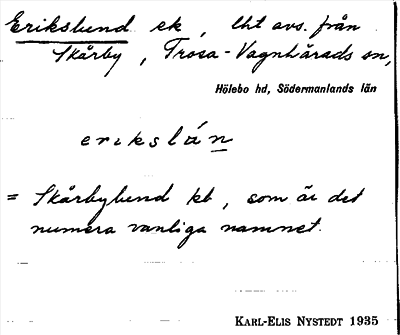 Erikslund ek, lht avs. från
Skårby, Trosa-Vagnhärads sn,
Hölebo hd, Södermanlands län
erikslán
= Skårbylund kb, som är det
numera vanliga namnet.
KARL-ELIS NYSTEDT 1935